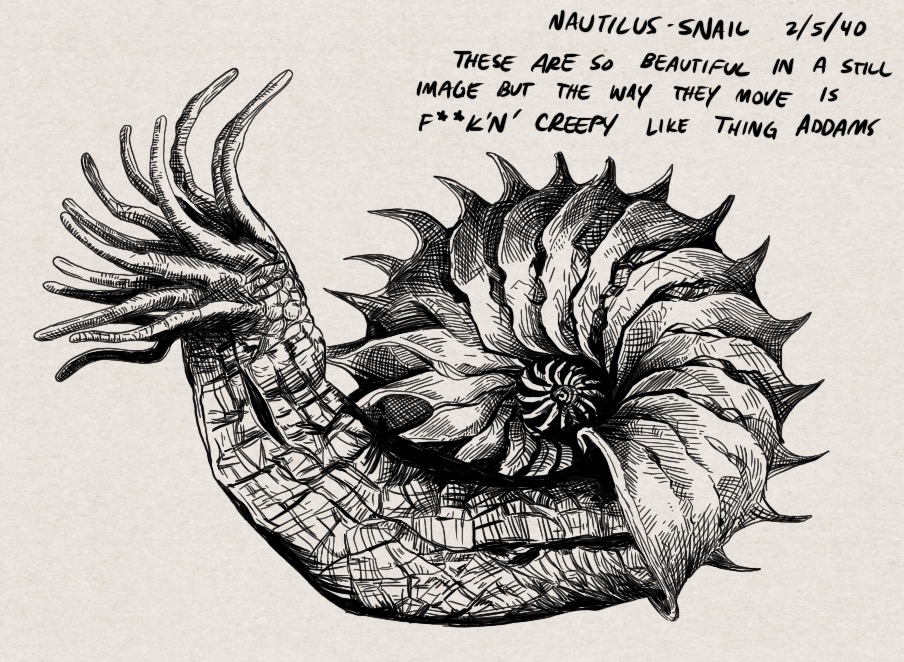 NAUTILUS-SNAIL 2/5/40
THESE ARE SO BEAUTIFUL IN A STILL
IMAGE BUT THE WAY THEY MOVE IS
F**K'N' CREEPY LIKE THING ADDAMS